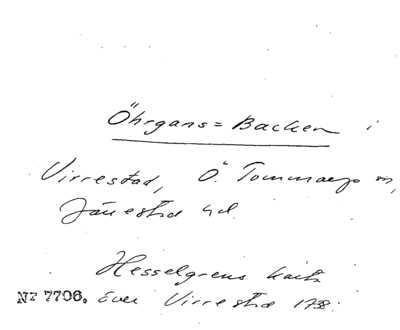 Öhrgans=Backen i
Virrestad, Ö. Tommarp sn,
Järrestad hd.
Hesselgrens karta
Nr 7706. över Virrestad 1738.